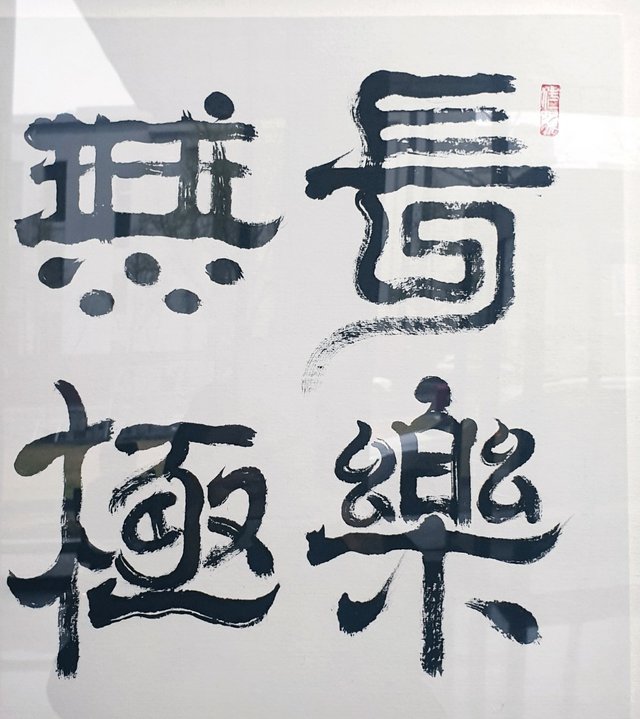 長樂
無極